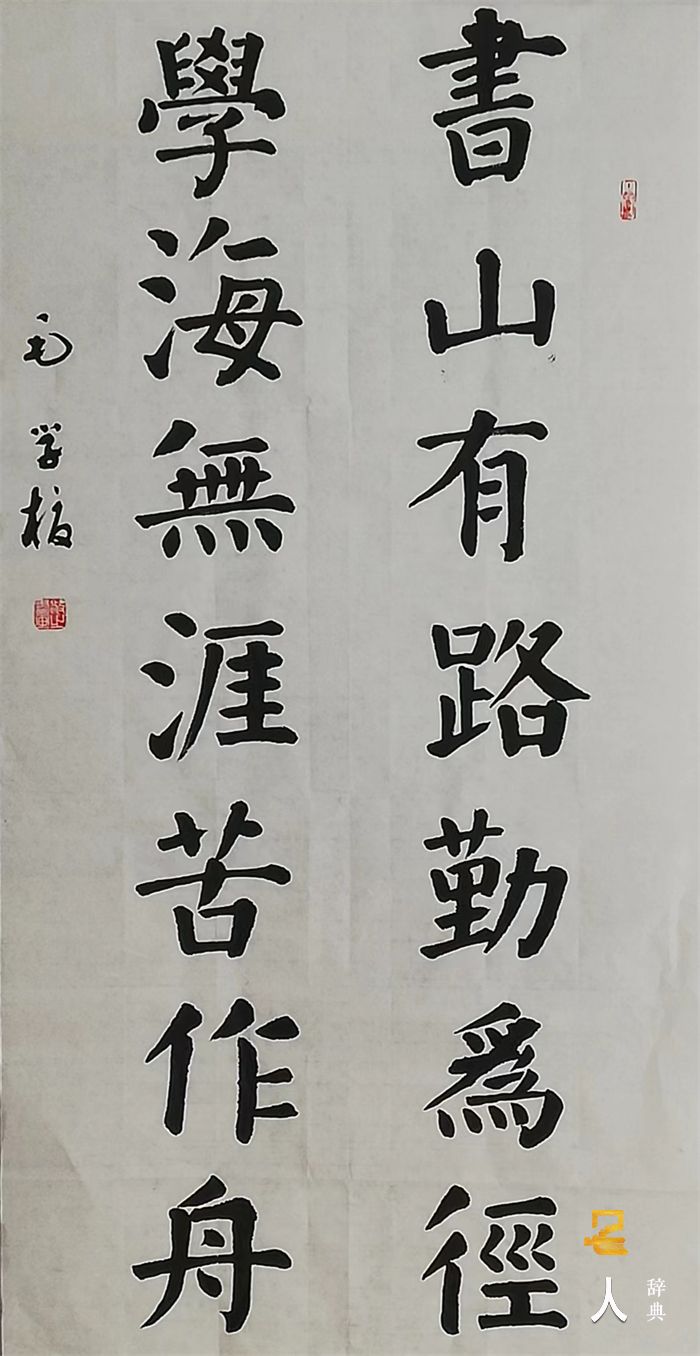 書山有路勤為徑
學海無涯苦作舟
毛学校
名人
辞典